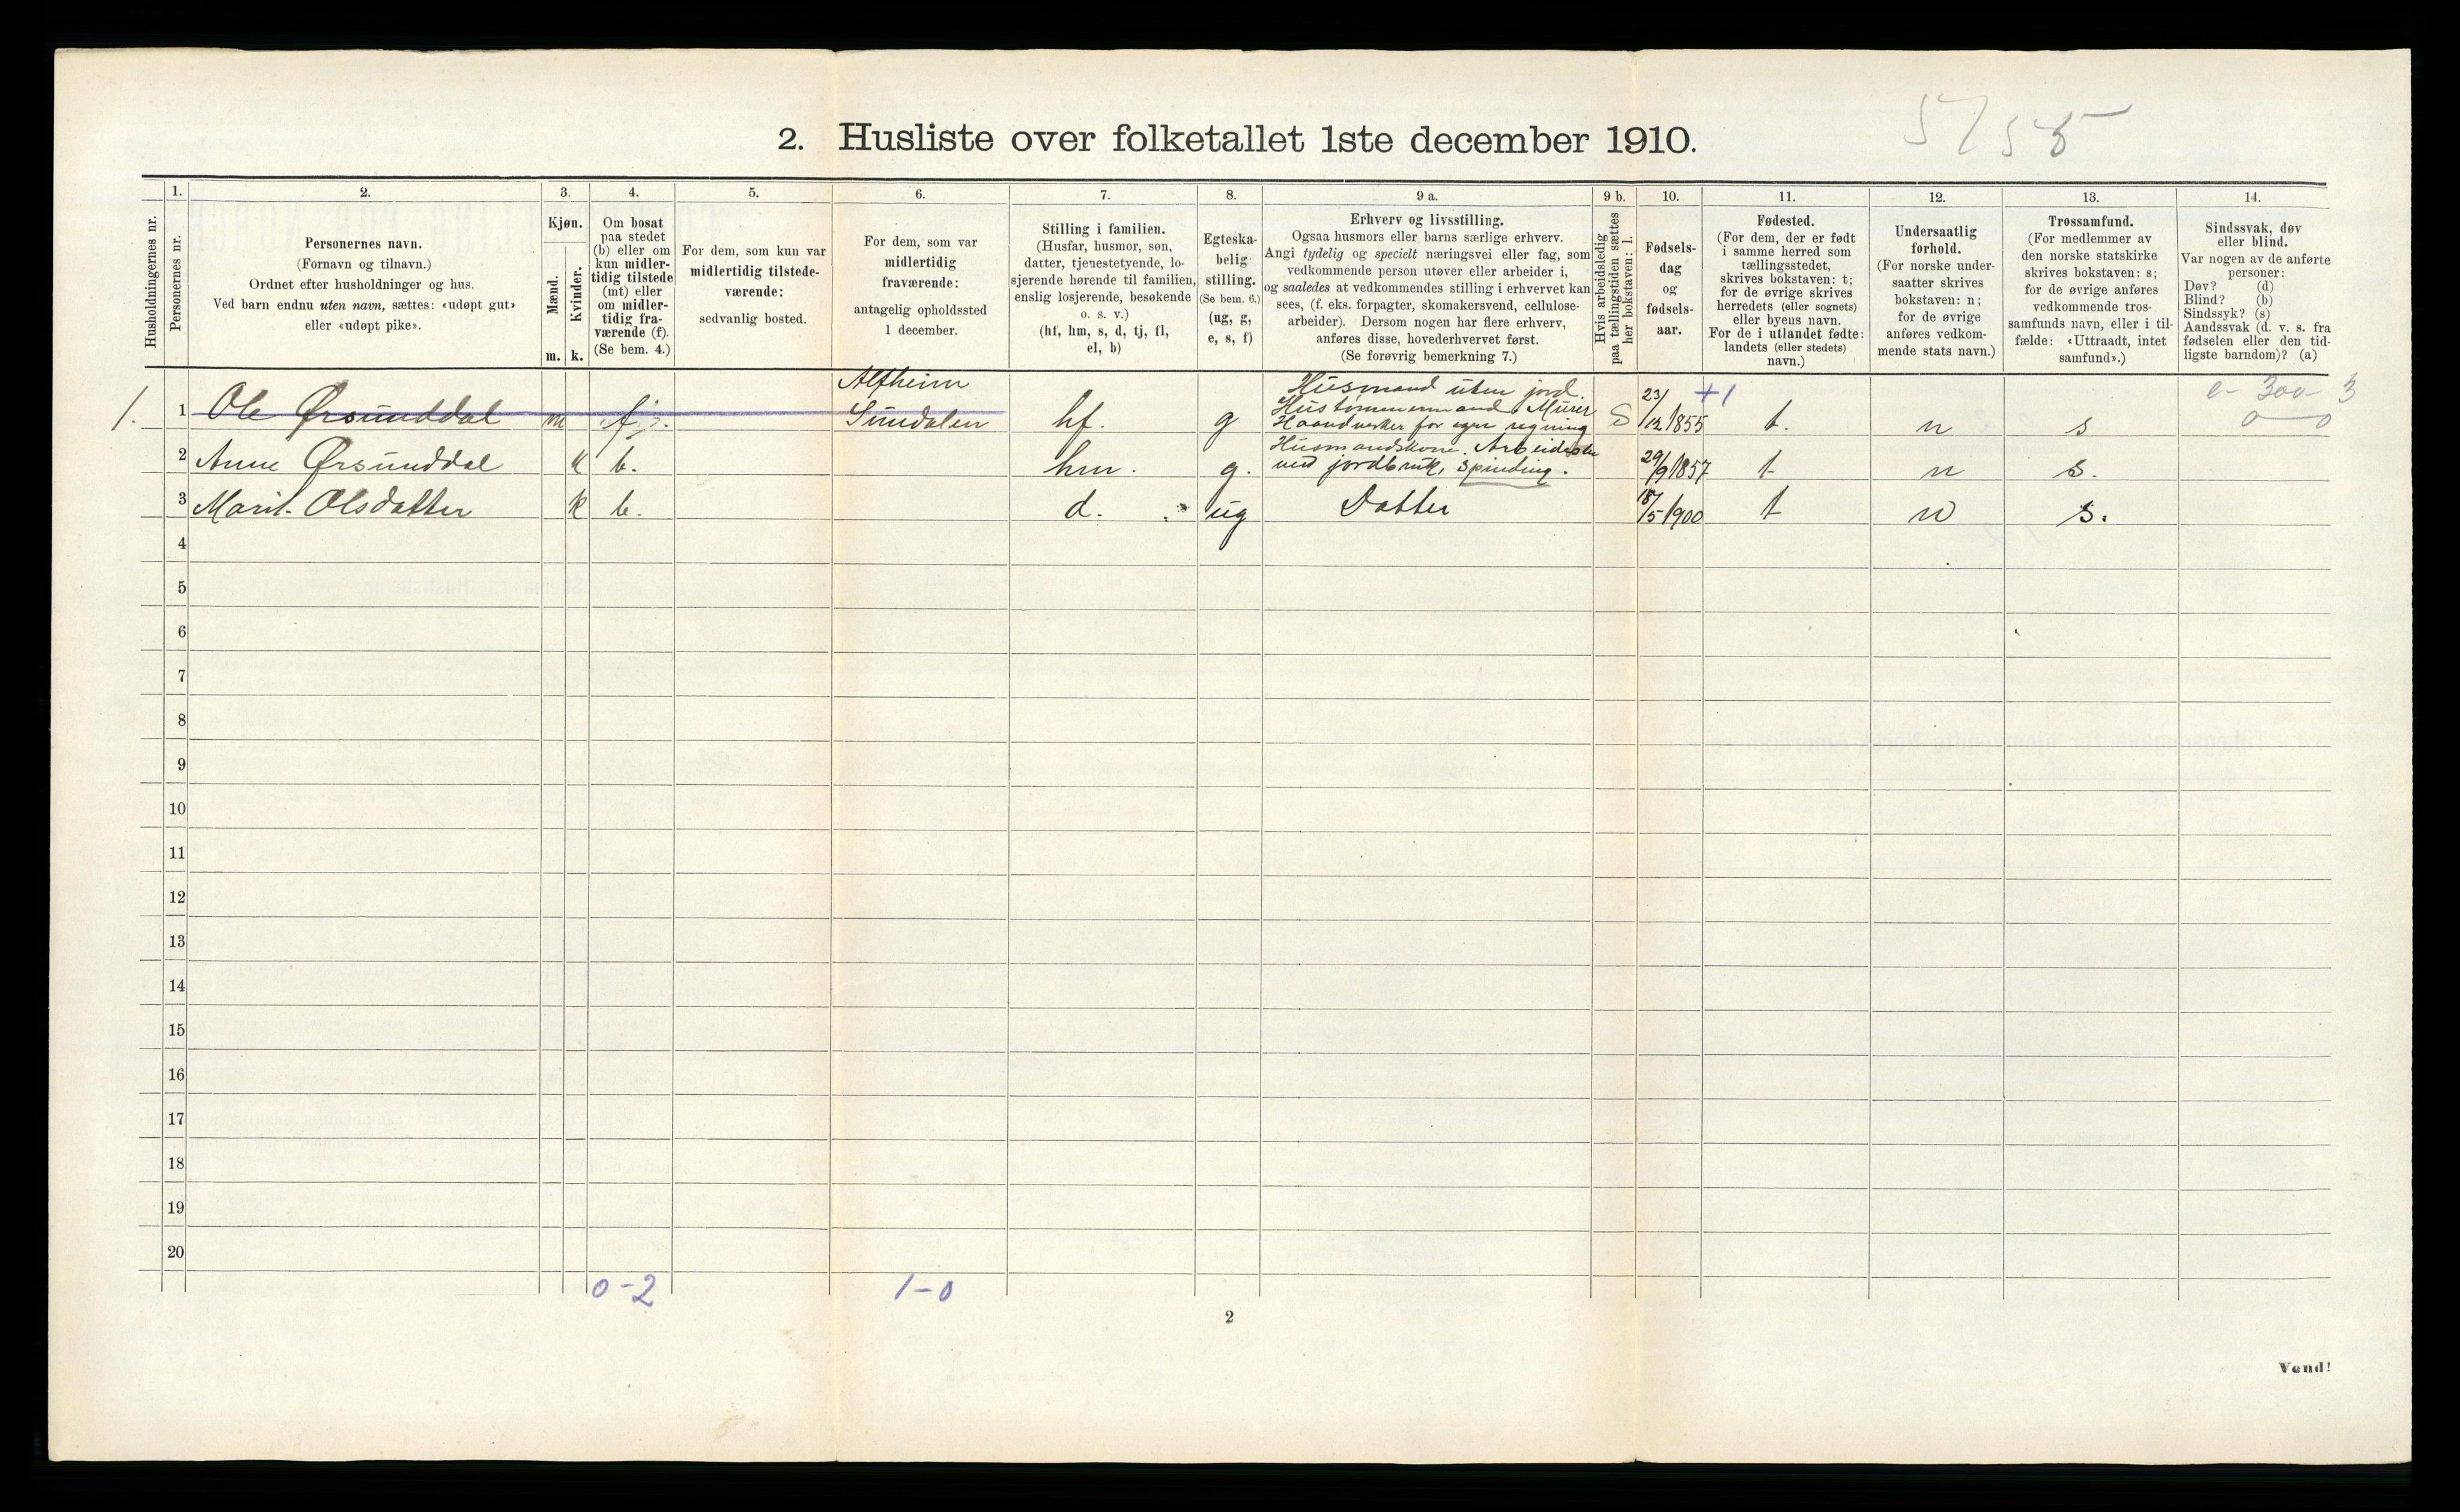 5758
2. Husliste over folketallet 1ste december 1910.
Husholdningernes nr.
1.
Personernes nr.
2.
Personernes navn.
(Fornavn og tilnavn.)
Ordnet efter husholdninger og hus.
Ved barn endnu uten navn, sættes: «udøpt gut»
eller «udøpt pike».
3.
Kjøn.
Mænd.
Kvinder.
m. k.
4.
Om bosat
paa stedet
(b) eller om
kun midler-
tidig tilstede
(mt) eller
om midler-
tidig fra-
værende (f).
(Se bem. 4.)
5.
For dem, som kun var
midlertidig tilstede-
værende:
sedvanlig bosted.
6.
For dem, som var
midlertidig
fraværende:
antagelig opholdssted
1 december.
7.
Stilling i familien.
(Husfar, husmor, søn,
datter, tjenestetyende, lo-
sjerende hørende til familien,
enslig losjerende, besøkende
o. s. v.)
(hf, hm, s, d, tj, fl,
el, b)
8.
Egteska-
belig
stilling.
(Se bem. 6.)
(ug, g,
e, s, f)
9 a.
Erhverv og livsstilling.
Ogsaa husmors eller barns særlige erhverv.
Angi tydelig og specielt næringsvei eller fag, som
vedkommende person utøver eller arbeider i,
og saaledes at vedkommendes stilling i erhvervet kan
sees, (f. eks. forpagter, skomakersvend, cellulose-
arbeider). Dersom nogen har flere erhverv,
anføres disse, hovederhvervet først.
(Se forøvrig bemerkning 7.)
9 b.
Hvis arbeidsledig
paa tællingstiden sættes
her bokstaven: l.
10.
Fødsels-
dag
og
fødsels-
aar.
11.
Fødested.
(For dem, der er født
i samme herred som
tællingsstedet,
skrives bokstaven: t;
for de øvrige skrives
herredets (eller sognets)
eller byens navn.
For de i utlandet fødte:
landets (eller stedets)
navn.)
12.
Undersaatlig
forhold.
(For norske under-
saatter skrives
bokstaven: n;
for de øvrige
anføres vedkom-
mende stats navn.)
13.
Trossamfund.
(For medlemmer av
den norske statskirke
skrives bokstaven: s;
for de øvrige anføres
vedkommende tros-
samfunds navn, eller i til-
fælde: «Uttraadt, intet
samfund».)
14.
Sindssvak, døv
eller blind.
Var nogen av de anførte
personer:
Døv? (d)
Blind? (b)
Sindssyk? (s)
Aandssvak (d. v. s. fra
fødselen eller den tid-
ligste barndom)? (a)
1. 1 Ole Ørsunddal m f. Alfheim
Sundalen hf. g Husmand uten jord.
Hustømmermand & Murer
Haandverker for egen regning S 23/12 1855 +1 t. n s e- 300- 3
0 0
2 Anne Ørsunddal k b. hm. g. Husmandskone. Arbeideske
med jordbruk, Spinding. 29/9 1857 t n s.
3 Marit Olsdatter k b. d. ug Datter 18/5 1900 t n s.
4
5
6
7
8
9
10
11
12
13
14
15
16
17
18
19
20
0-2 1-0
2
Vend!